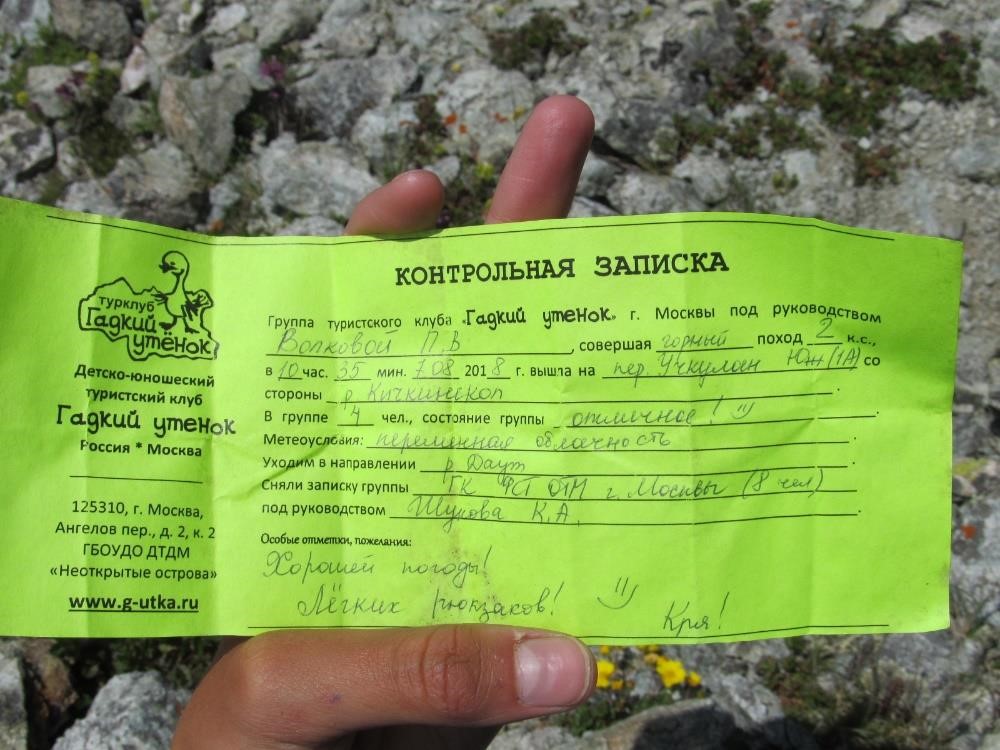 турклуб
Гадкий
утёнок
Детско-юношеский
туристский клуб
Гадкий утенок
Россия * Москва
125310, г. Москва,
Ангелов пер., д. 2, к. 2
ГБОУДО ДТДМ
«Неоткрытые острова»
www.g-utka.ru
КОНТРОЛЬНАЯ ЗАПИСКА
Группа туристского клуба «Гадкий утенок» г. Москвы под руководством
Волковой П.В, совершая горный поход 2 к.с.,
в 10 час. 35 мин. 7.08 2018 г. вышла на пер. Учкулан Юж (1А) со
стороны р. Кичкинекол.
В группе 4 чел., состояние группы отличное! .
Метеоусловия: переменная облачность.
Уходим в направлении р. Даут.
Сняли записку группы ГК ФСТ ОТМ г. Москвы (8 чел)
под руководством К.А.
Особые отметки, пожелания:
Хорошей погоды!
Лёгких рюкзаков!
Кря!